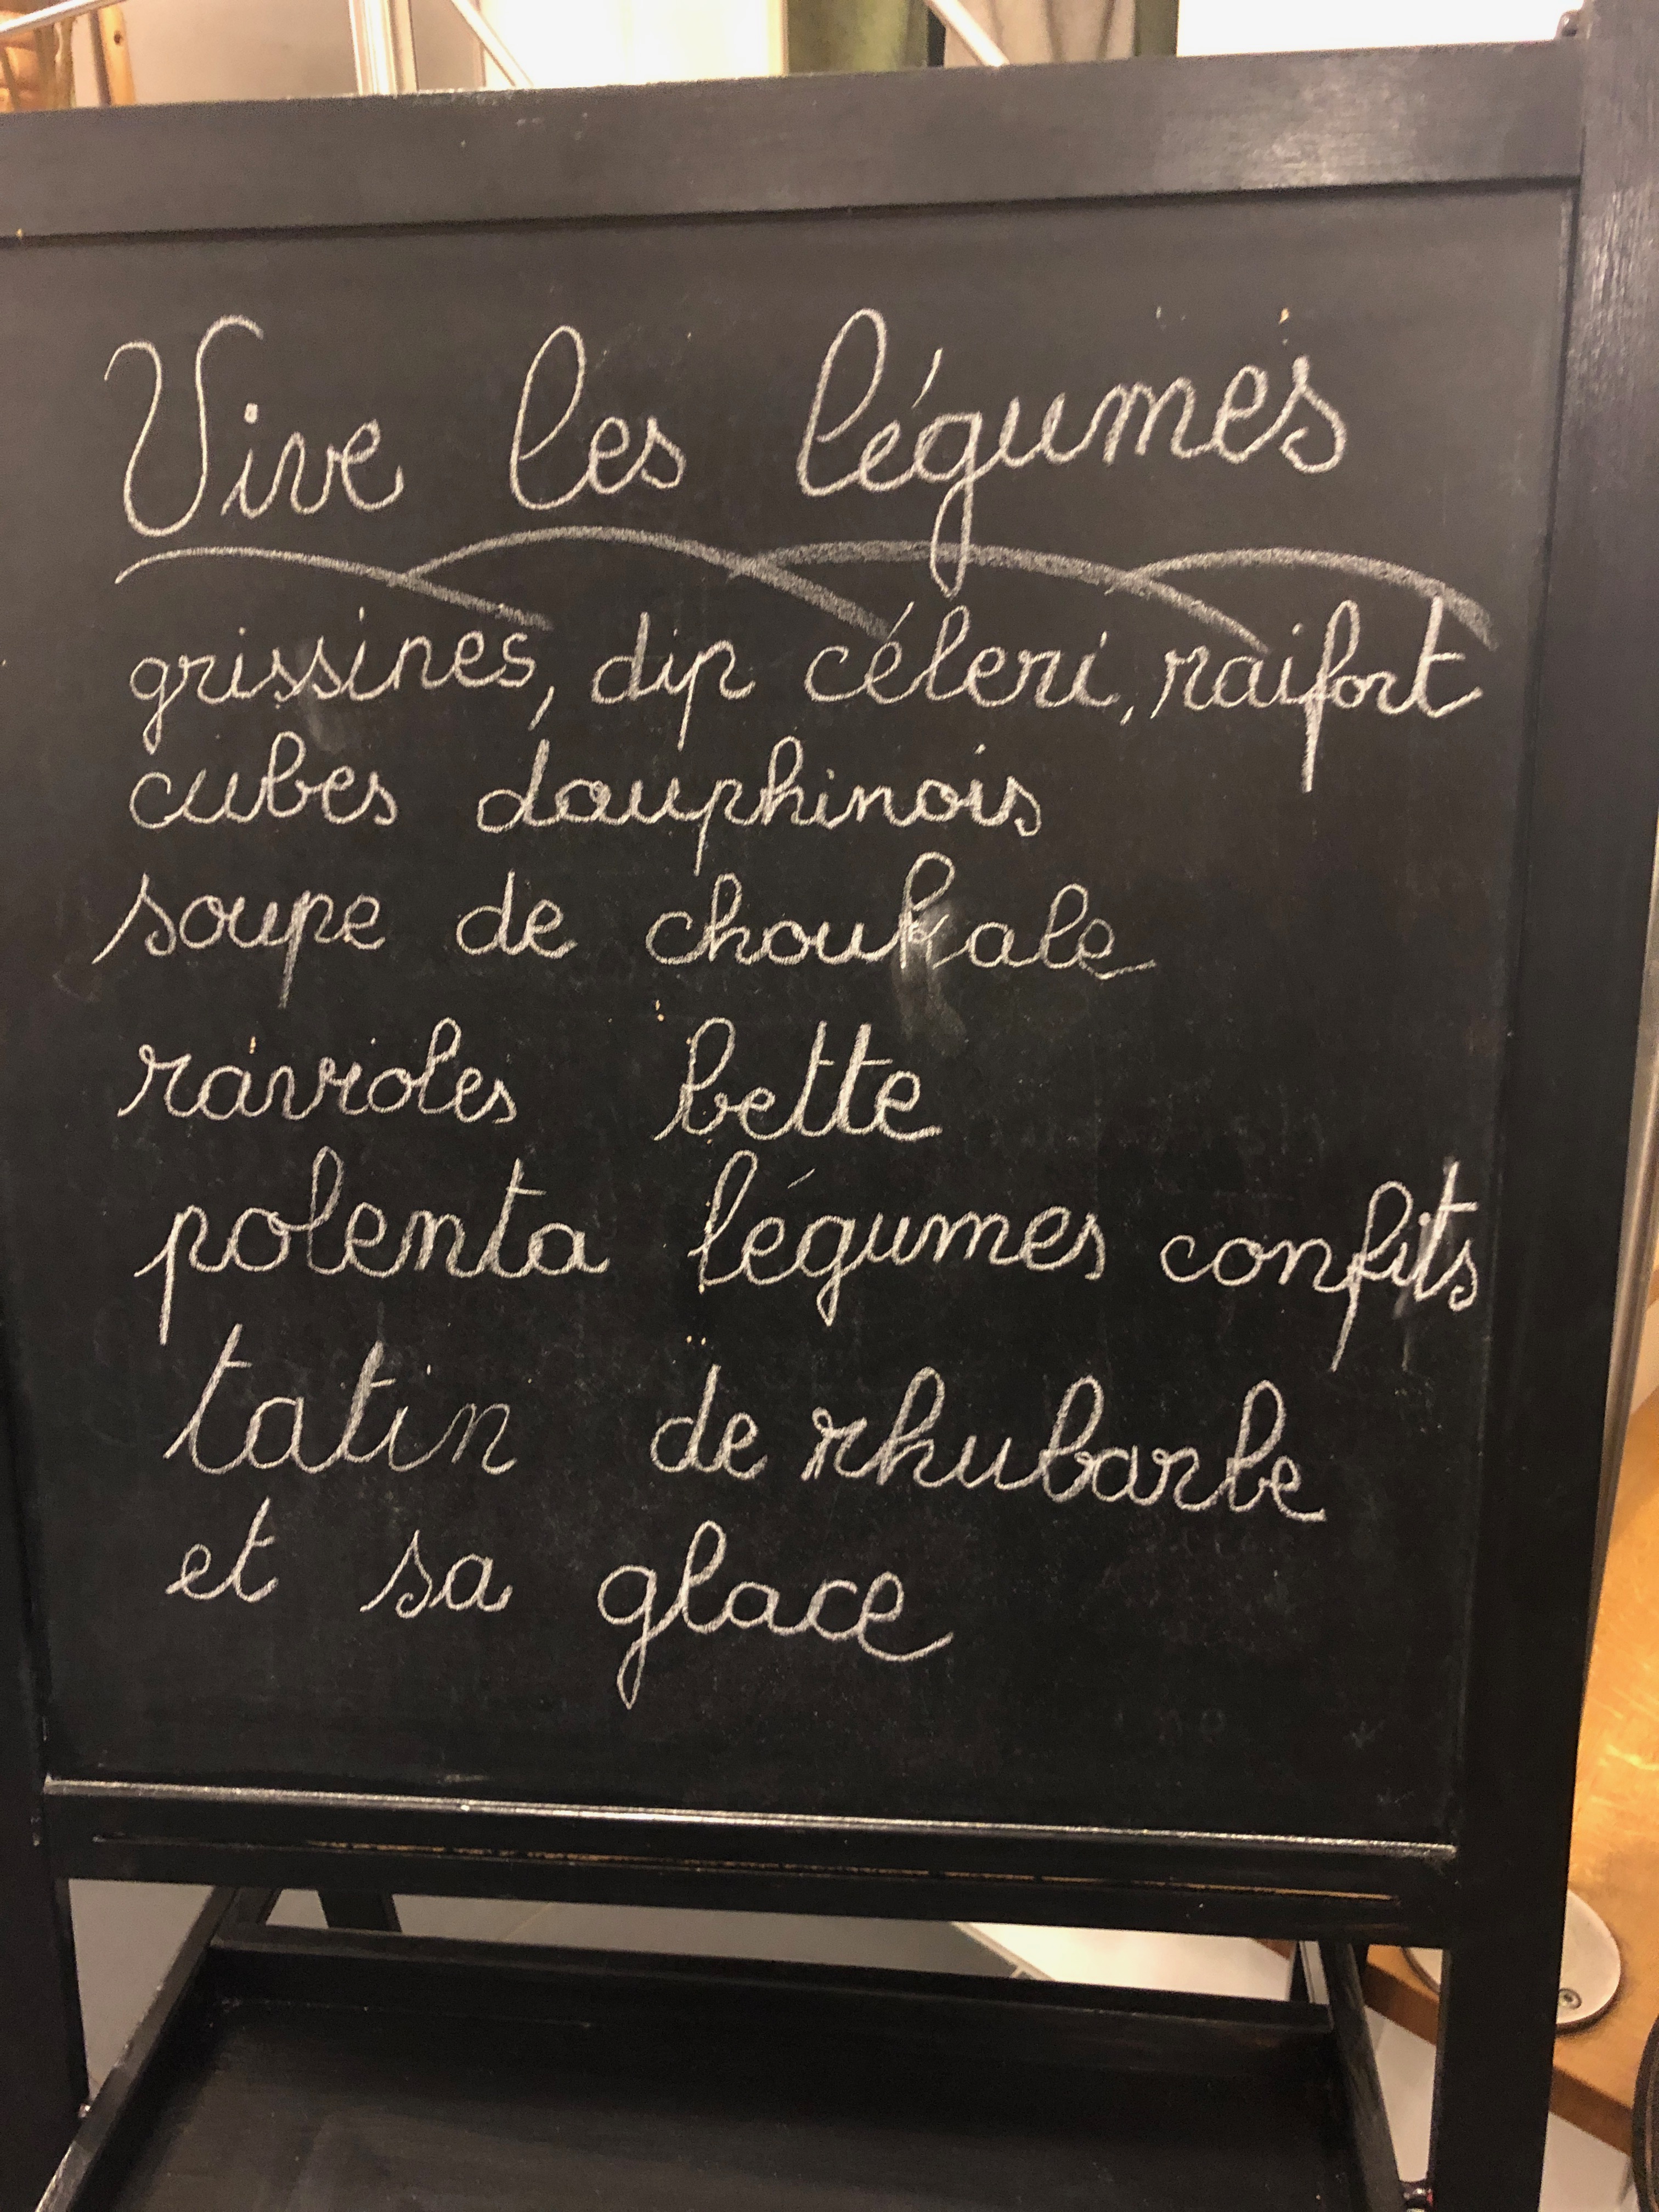 Vive les légumes
grissines, dip céleri, raifort
cubes dauphinois
soupe de chou kale
ravioles bette
polenta légumes confits
tatin de rhubarbe
et sa glace